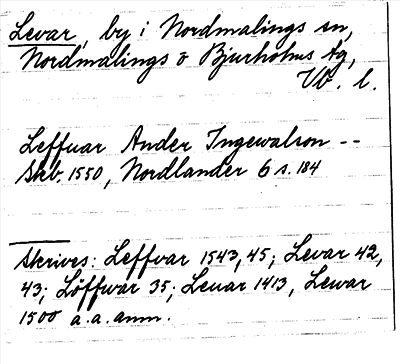 Levar, by i Nordmalings sn,
Nordmalings o Bjurholms tg,
Vb. l.
Leffuar Ander Ingewalson --
Skb. 1550, Nordlander 6 s. 184
Skrives: Leffvar 1543, 45; Levar 42,
43; Löffwar 35; Leuar 1413, Lewar
1500 a.a. anm.